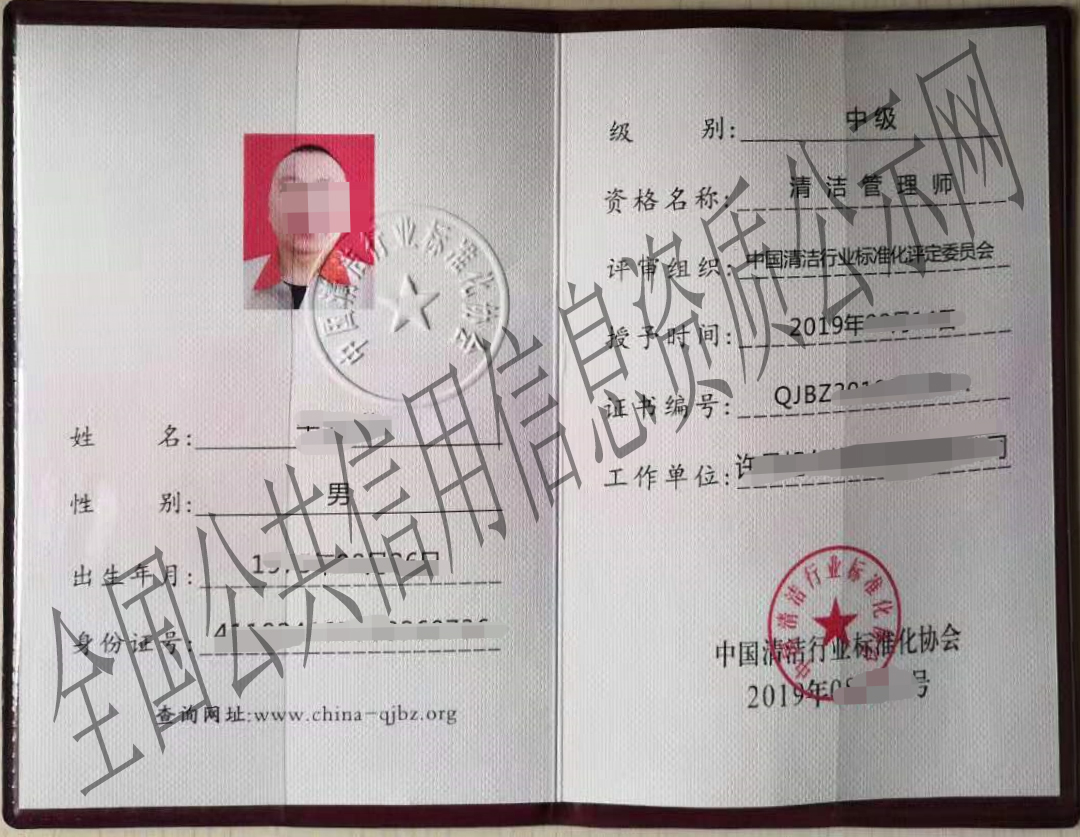 中国清洁行业标准化协会
姓 名:
性 别: 男
出生年月:
身份证号:
查询网址:www.china-qjbz.org
级 别: 中级
资格名称: 清洁管理师
评审组织: 中国清洁行业标准化评定委员会
授予时间: 2019年
证书编号: QJBZ
工作单位:
中国清洁行业标准化协会
中国清洁行业标准化协会
2019年 号
全国公共信用信息资质公示网